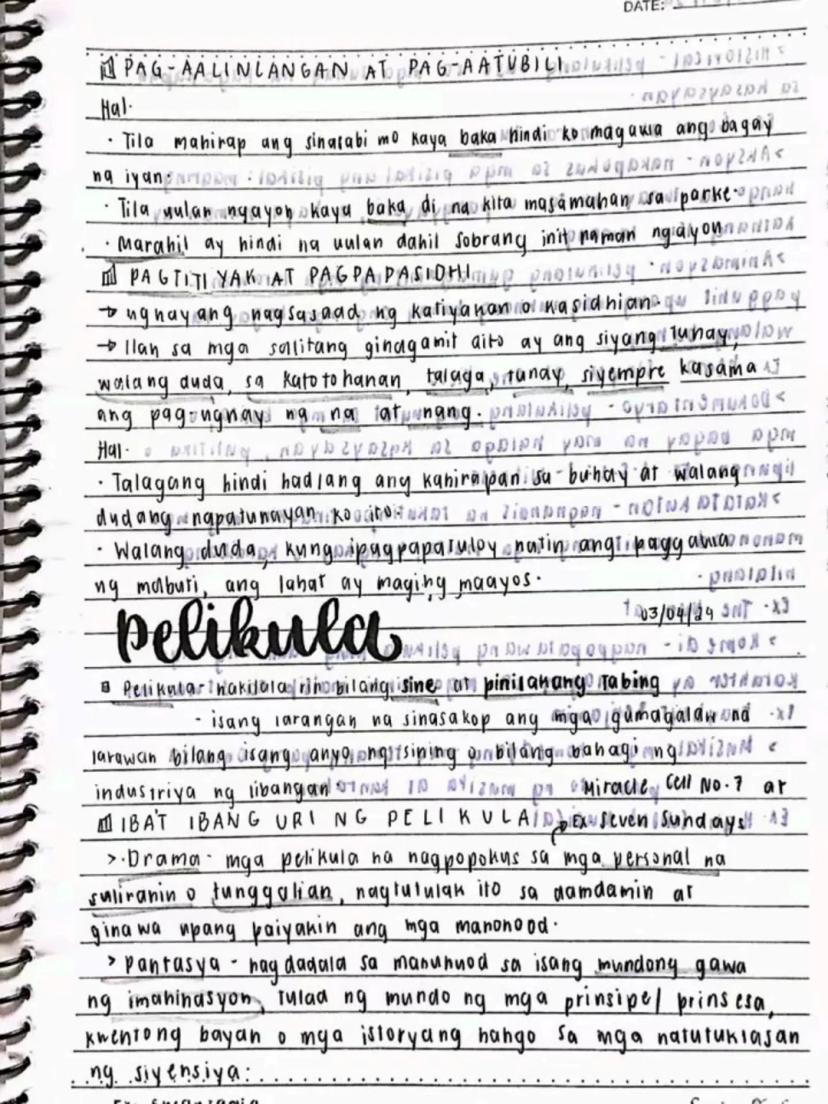 DATE:
PAG-AALINLANGAN AT PAG-AATUBILI
Hal.
· Tila mahirap ang sinasabi mo kaya baka hindi ko magawa ang bagay
na iyan.
· Tila uulan ngayon kaya baka di na kita masamahan sa parke.
· Marahil ay hindi na uulan dahil sobrang init naman ngayon
PAGTITIYAK AT PAGPAPASIDHI
→ ugnay ang nagsasaad ng katiyakan o kasidhian.
→ Ilan sa mga salitang ginagamit dito ay ang siyang tunay,
walang duda, sa katotohanan, talaga, tunay, siyempre kasama
ang pag-ugnay ng na at nang.
Hal.
· Talagang hindi hadlang ang kahirapan sa buhay at walang
dudang napatunayan ko ito.
· Walang duda, kung ipagpapatuloy natin ang paggawa
ng mabuti, ang lahat ay maging maayos.
03/04/24
Pelikula
Pelikula- nakilala rin bilang sine at pinilakang Tabing
- isang larangan na sinasakop ang mga gumagalaw na
larawan bilang isang anyo ng sining o bilang bahagi ng
industriya ng libangan
Miracle Cell No. 7 at
IBA'T IBANG URI NG PELIKULA Ex. Seven Sundays
> Drama - mga pelikula na nagpopokus sa mga personal na
suliranin o tunggalian, nagtutulak ito sa damdamin at
ginawa upang paiyakin ang mga manonood.
> Pantasya - nagdadala sa manunuod sa isang mundong gawa
ng imahinasyon, tulad ng mundo ng mga prinsipe/ prinsesa,
kwentong bayan o mga istoryang hango sa mga natutuklasan
ng siyensiya: